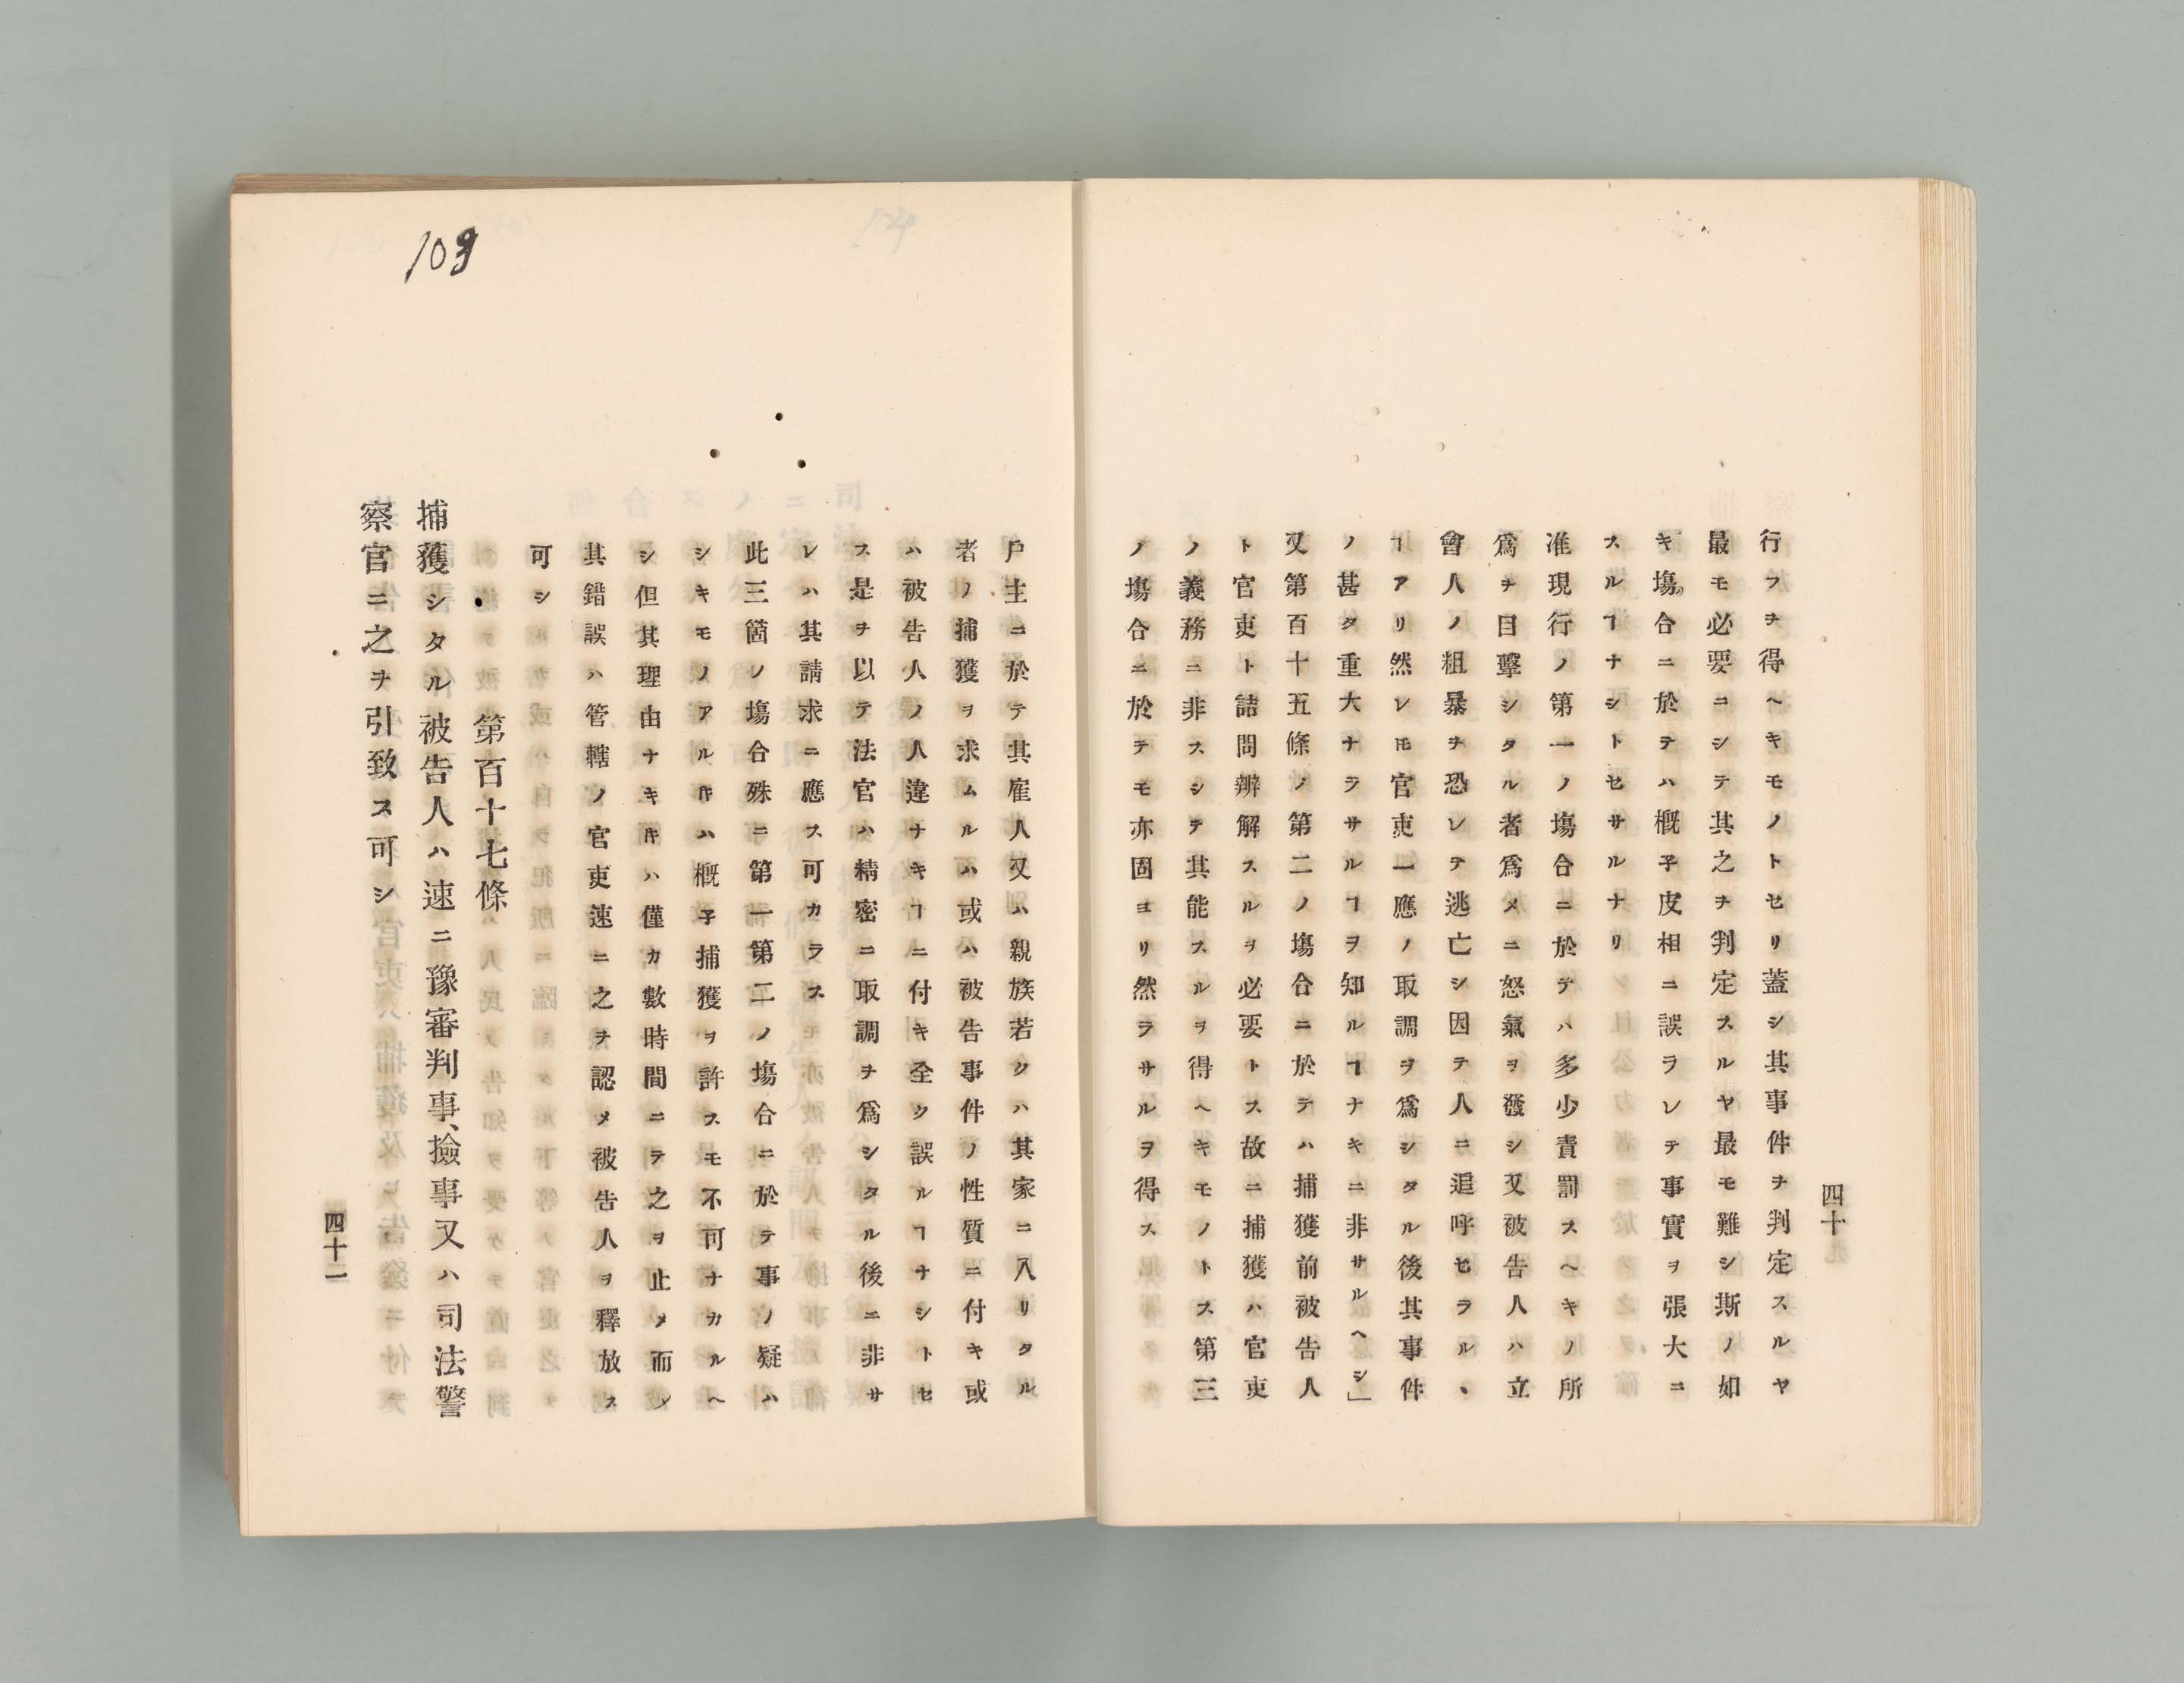 行フヲ得ヘキモノトセリ蓋シ其事件ヲ判定スルヤ
最モ必要ニシテ其之ヲ判定スルヤ最モ難シ斯ノ如
キ塲合ニ於テハ概子皮相ニ誤ラレテ事實ヲ張大ニ
スルヿナシトセサルナリ
准現行ノ第一ノ塲合ニ於テハ多少責罰スヘキノ所
爲ヲ目擊シタル者爲メニ怒氣ヲ發シ又被告人ハ立
會人ノ粗暴ヲ恐レテ逃亡シ因テ人ニ追呼セラルヽ
ヿアリ然レㇳモ官吏一應ノ取調ヲ爲シタル後其事件
ノ甚タ重大ナラサルヿヲ知ルヿナキニ非サルヘシ」
又第百十五條ノ第二ノ塲合ニ於テハ捕獲前被告人
ト官吏ト詰問辨解スルヲ必要トス故ニ捕獲ハ官吏
ノ義務ニ非スシテ其能スルヲ得ヘキモノトス第三
ノ塲合ニ於テモ亦固ヨリ然ラサルヲ得ス
四十
戸主ニ於テ其雇人又ハ親族若クハ其家ニ入リタル
者ノ捕獲ヲ求ムルハ或ハ被告事件ノ性質ニ付キ或
ハ被告人ノ人違ナキヿニ付キ全ク誤ルヿナシトセ
ス是ヲ以テ法官ハ精密ニ取調ヲ爲シタル後ニ非サ
レハ其請求ニ應ス可カラス
此三箇ノ塲合殊ニ第一第二ノ塲合ニ於テ事ノ疑ハ
シキモノアルキハ概子捕獲ヲ許スモ不可ナカルヘ
シ但其理由ナキキハ僅カ數時間ニテ之ヲ止メ而ノ
其錯誤ハ管轄ノ官吏速ニ之ヲ認メ被告人ヲ釋放ス
可シ
第百十七條
捕獲シタル被告人ハ速ニ豫審判事、撿事又ハ司法警
察官ニ之ヲ引致ス可シ
四十一
109